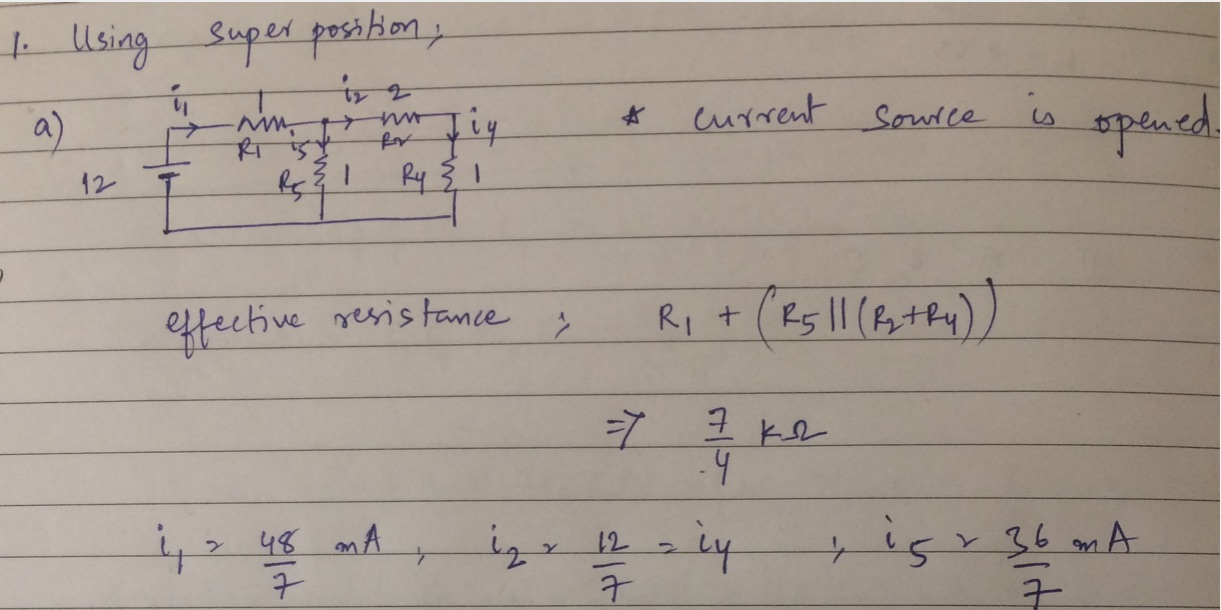 1. Using super position;
a)
i1 1 i2 2 i4
R1 i5 R2
12 R5 1 R4 1
* current source is opened.
effective resistance ; R1 + (R5 || (R2+R4))
=> 7/4 kΩ
i1 = 48/7 mA , i2 = 12/7 = i4 ; i5 = 36/7 mA